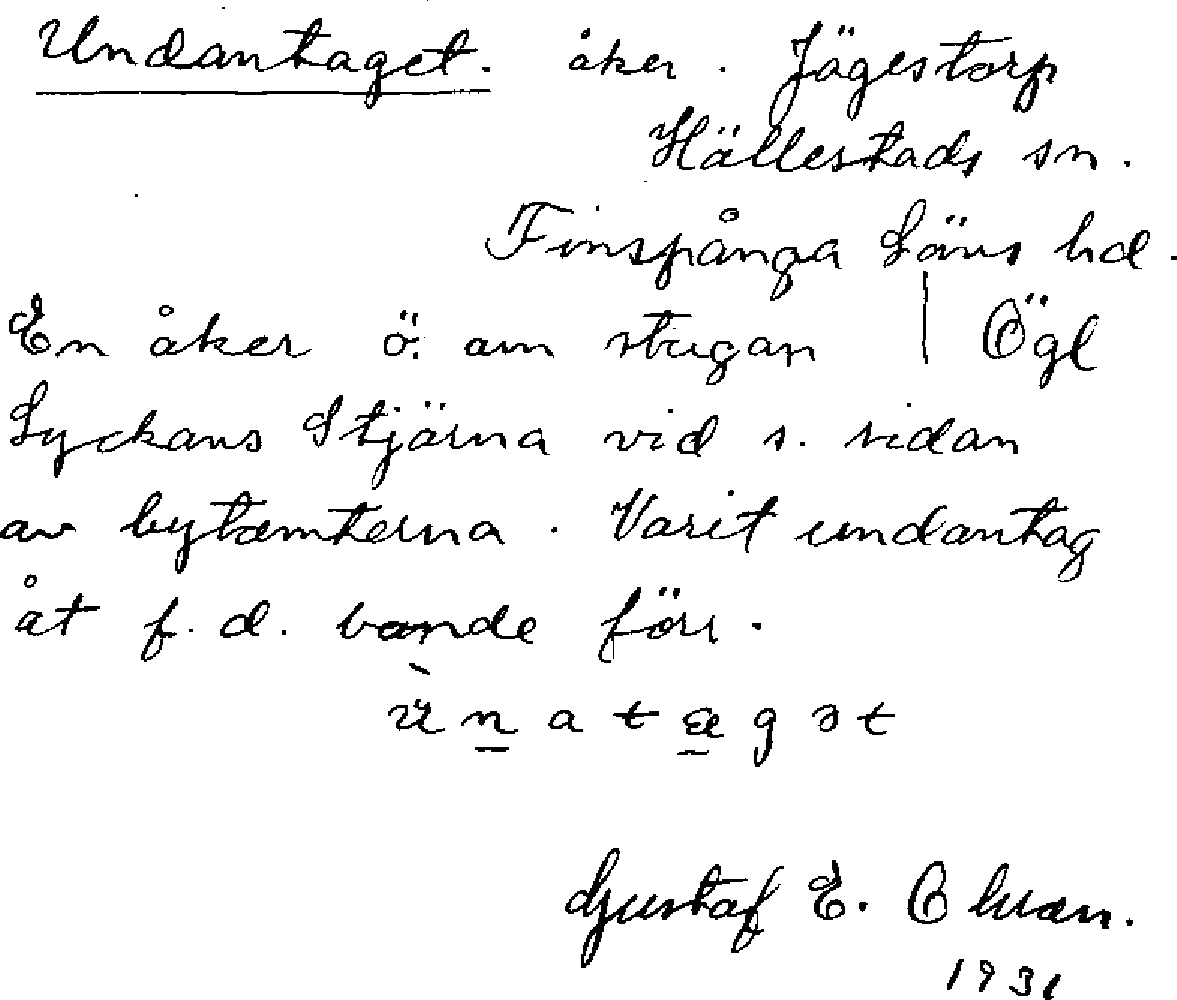 Undantaget. åker. Jägestorp
Hällestads sn.
Finspånga Läns hd.
En åker ö. om stugan | Ögl
Lyckans Stjärna vid s. sidan
av bytomterna. Varit undantag
åt f. d. bonde förr.
ùnatagət
Gustaf E.
1931